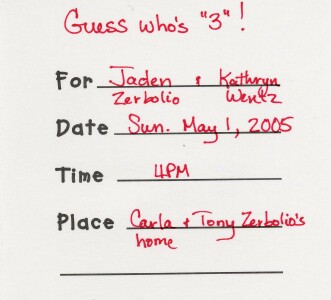 Guess who's "3"!
For Jaden & Kathryn
Zerbolio Wentz
Date Sun. May 1, 2005
Time 4PM
Place Carla + Tony Zerbolio's
home